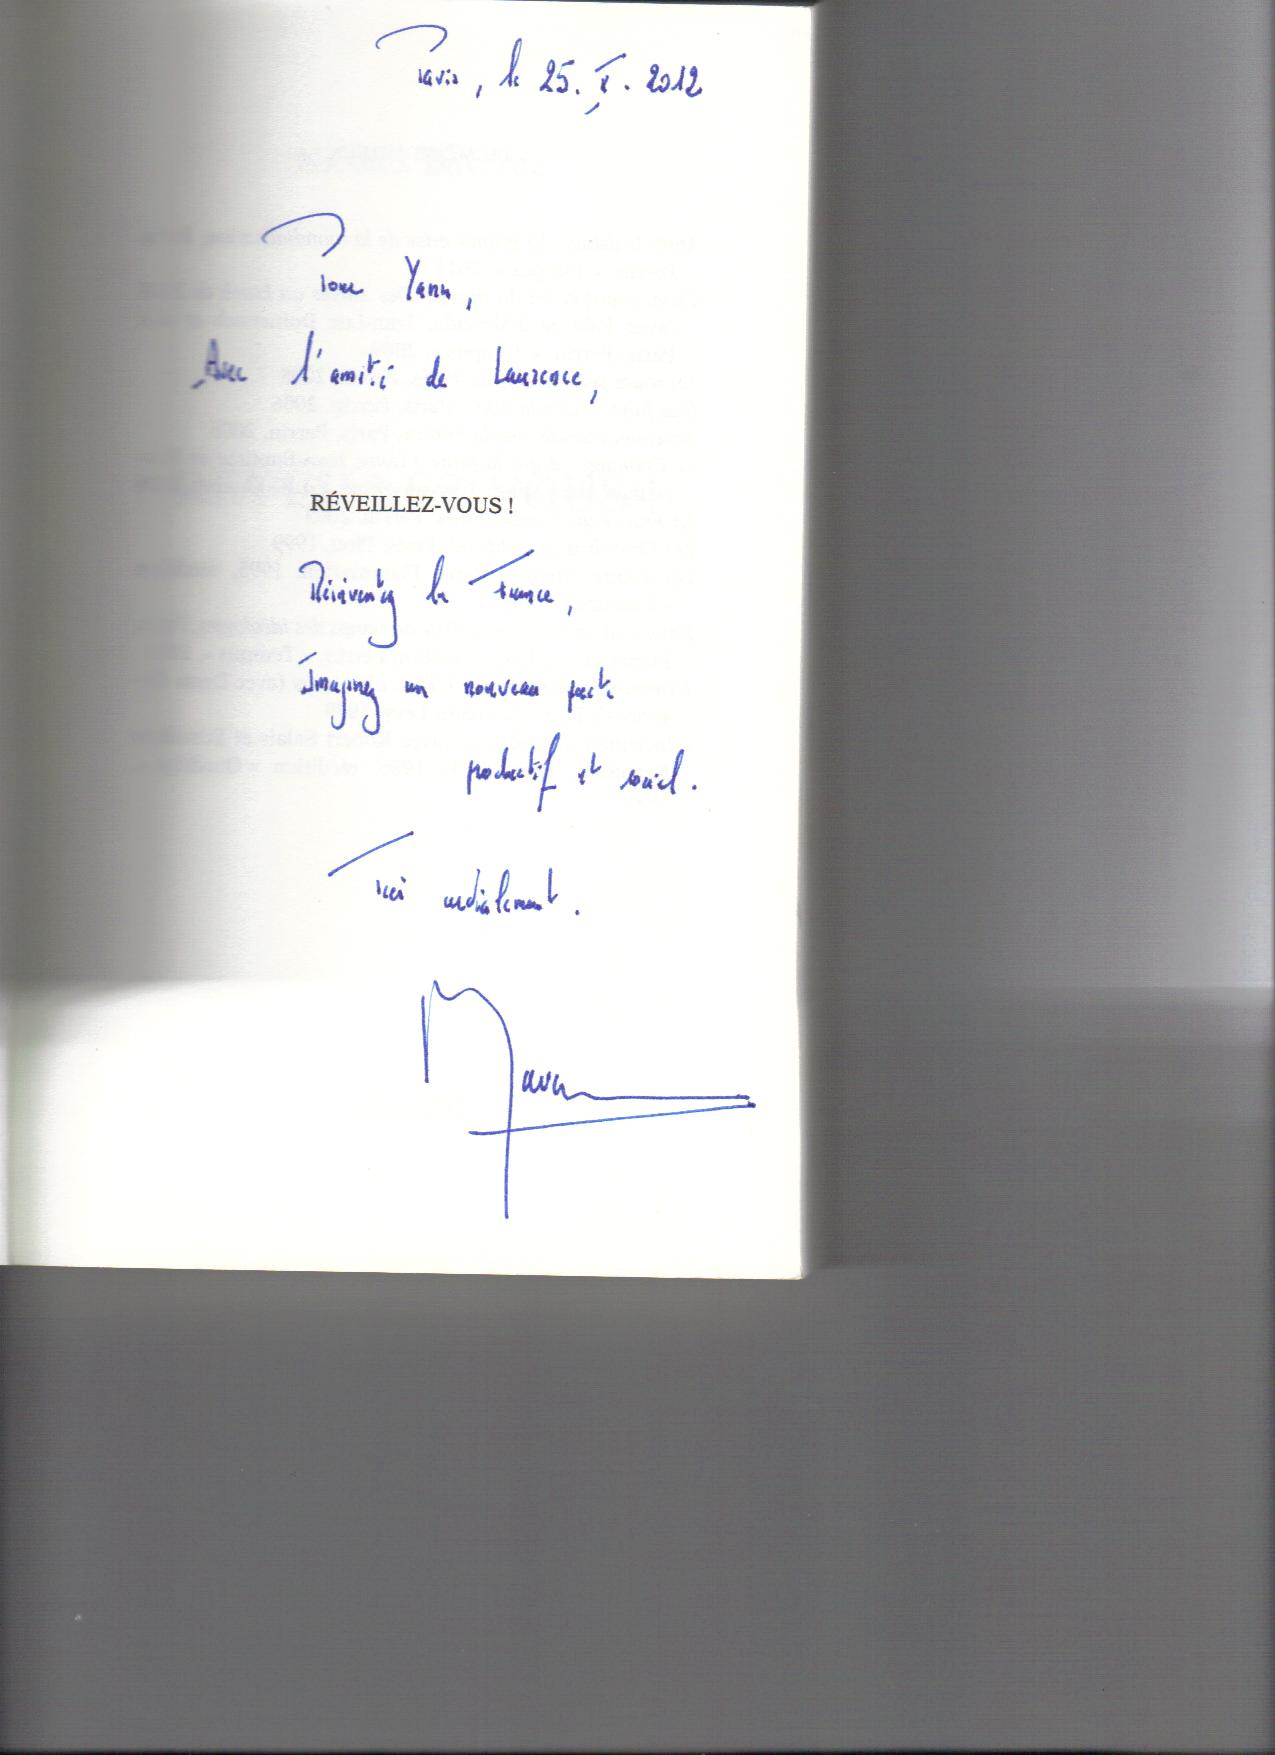 Paris, le 25. X. 2012
Pour Yann,
Avec l'amitié de Laurence,
RÉVEILLEZ-VOUS !
Réinventez la France,
Imaginez un nouveau pacte
productif et social.
Très cordialement.